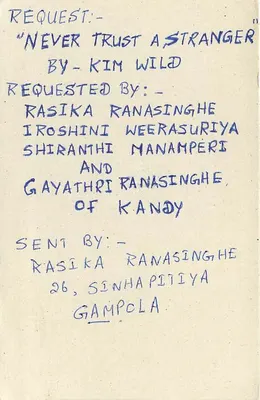 REQUEST:-
"NEVER TRUST A STRANGER
BY - KIM WILD
REQUESTED BY:-
RASIKA RANASINGHE
IROSHINI WEERASURIYA
SHIRANTHI MANAMPERI
AND
GAYATHRI RANASINGHE.
OF KANDY
SENT BY:-
RASIKA RANASINGHE
26, SINHAPITIYA
GAMPOLA